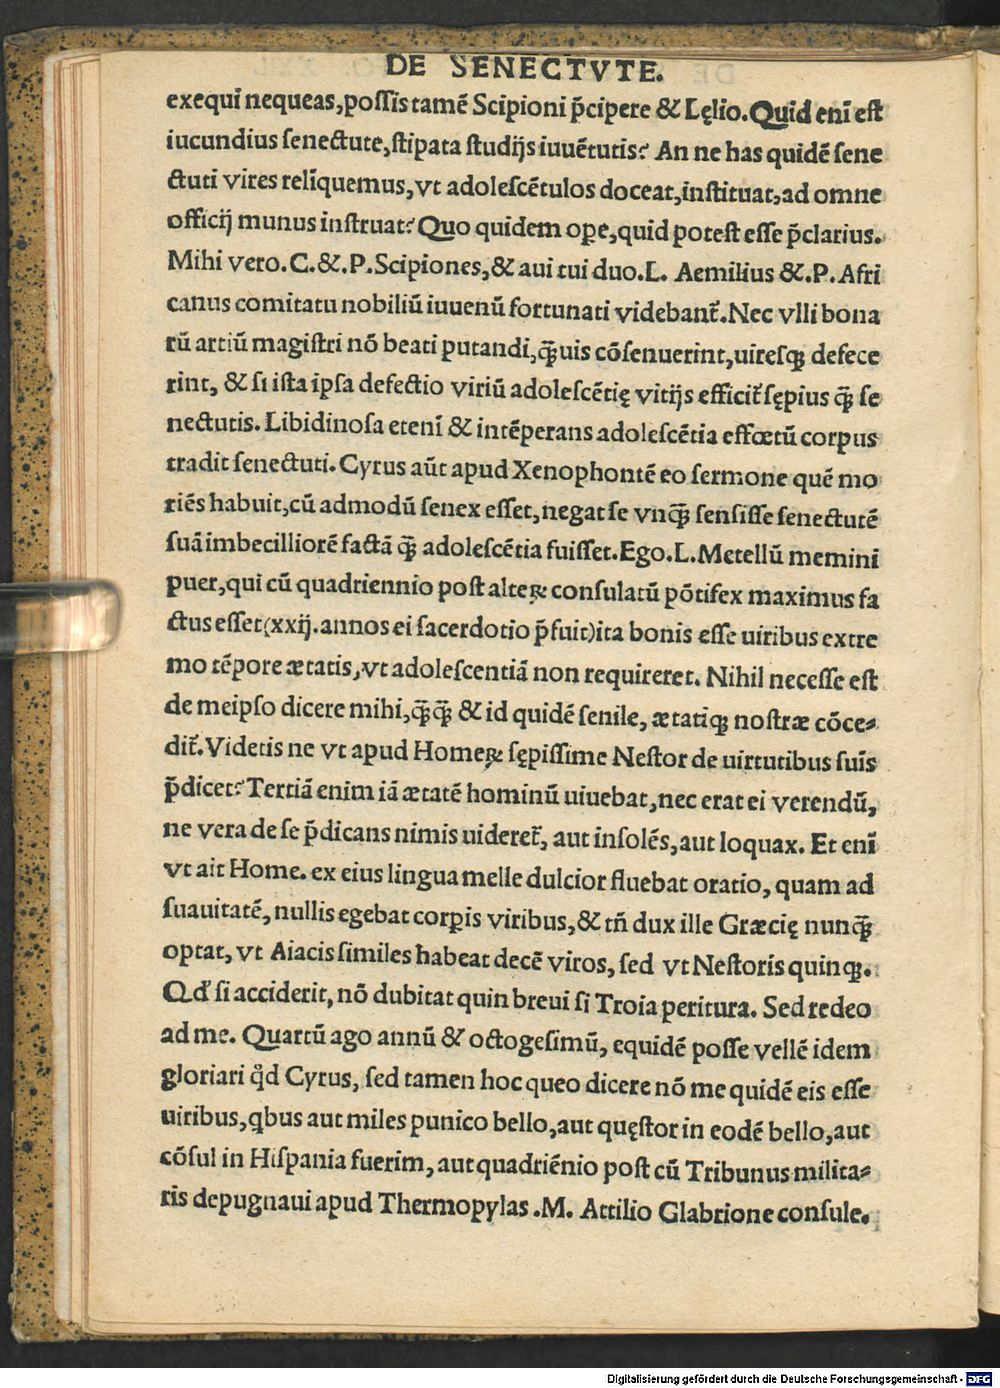 DE SENECTVTE.
exequi nequeas, poſſis tamē Scipioni p̄cipere & Lęlio. Quid enī eſt
iucundius ſenectute, ſtipata ſtudijs iuuētutis? An ne has quidē ſene
ctuti vires relīquemus, vt adoleſcētulos doceat, inſtituat, ad omne
officij munus inſtruat? Quo quidem ope, quid poteſt eſſe p̄clarius.
Mihi vero. C. &. P. Scipiones, & aui tui duo. L. Aemilius &. P. Afri
canus comitatu nobiliū iuuenū fortunati videbant᷑. Nec vlli bona
rū artiū magiſtri nō beati putandi, q̄uis cōſenuerint, uireſqꝫ defece
rint, & ſi iſta ipſa defectio viriū adoleſcētię vitijs efficit᷑ ſępius q̄ ſe
nectutis. Libidinoſa etenī & intēperans adoleſcētia effœtū corpus
tradit ſenectuti. Cyrus aūt apud Xenophontē eo ſermone quē mo
riēs habuit, cū admodū ſenex eſſet, negat ſe vnq̄ ſenſiſſe ſenectutē
ſuā imbecilliorē factā q̄ adoleſcētia fuiſſet. Ego. L. Metellū memini
puer, qui cū quadriennio poſt alteꝝ conſulatū pōtifex maximus fa
ctus eſſet (xxij. annos ei ſacerdotio p̄fuit) ita bonis eſſe uiribus extre
mo tēpore ætatis, vt adoleſcentiā non requireret. Nihil neceſſe eſt
de meipſo dicere mihi, q̄q̄ & id quidē ſenile, ætatiqꝫ noſtræ cōce⸗
dit᷑. Videtis ne vt apud Homeꝝ ſępiſſime Neſtor de uirtutibus ſuis
p̄dicet? Tertiā enim iā ætatē hominū uiuebat, nec erat ei verendū,
ne vera de ſe p̄dicans nimis uideret᷑, aut inſolēs, aut loquax. Et enī
vt ait Home. ex eius lingua melle dulcior fluebat oratio, quam ad
ſuauitatē, nullis egebat corꝑis viribus, & tn̄ dux ille Græcię nunq̄
optat, vt Aiacis ſimiles habeat decē viros, ſed vt Neſtoris quinqꝫ.
Qd' ſi acciderit, nō dubitat quin breui ſi Troia peritura. Sed redeo
ad me. Quartū ago annū & octogeſimū, equidē poſſe vellē idem
gloriari qd̊ Cyrus, ſed tamen hoc queo dicere nō me quidē eis eſſe
uiribus, qbus aut miles punico bello, aut quęſtor in eodē bello, aut
cōſul in Hiſpania fuerim, aut quadriēnio poſt cū Tribunus milita⸗
ris depugnaui apud Thermopylas. M. Attilio Glabrione conſule.
Digitalisierung gefördert durch die Deutsche Forschungsgemeinschaft - DFG